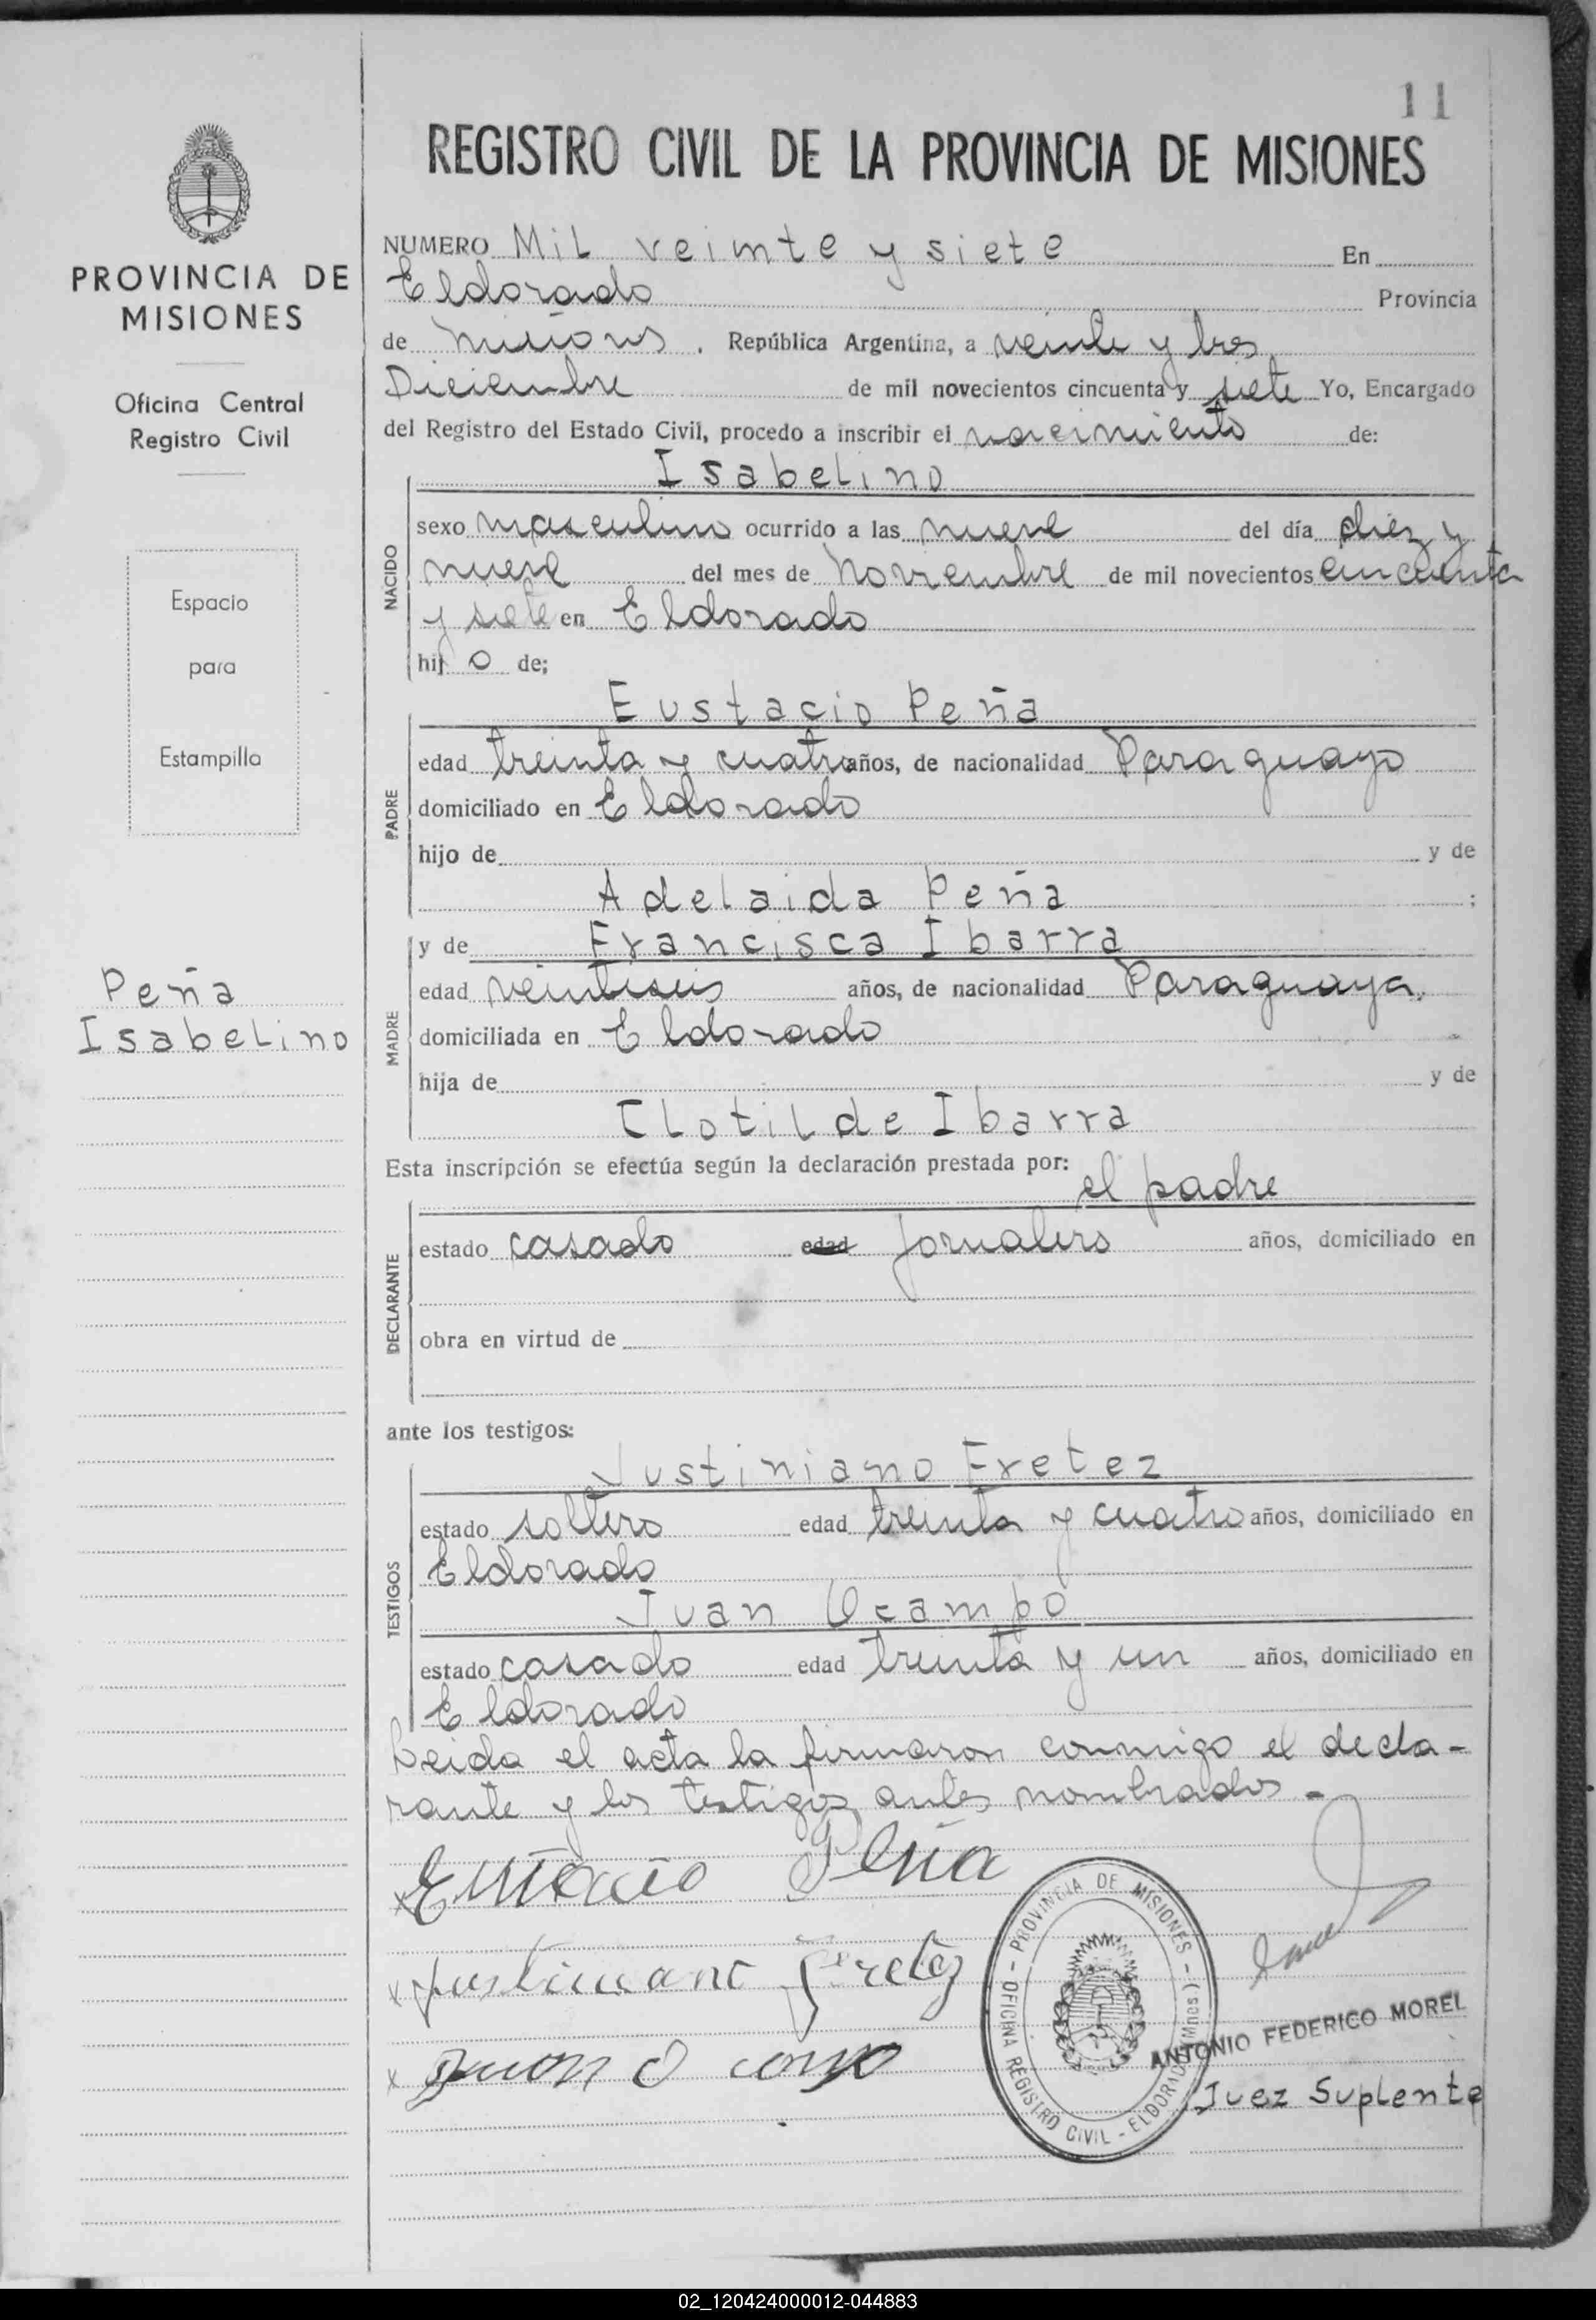 11
REGISTRO CIVIL DE LA PROVINCIA DE MISIONES
PROVINCIA DE
MISIONES
Oficina Central
Registro Civil
Espacio
para
Estampilla
Peña
Isabelino
NUMERO Mil veimte y siete En
Eldorado Provincia
de Misiones , República Argentina, a veinte y tres
Diciembre de mil novecientos cincuenta y siete Yo, Encargado
del Registro del Estado Civil, procedo a inscribir el nacimiento de:
NACIDO
Isabelino
sexo masculino ocurrido a las nueve del día diez y
nueve del mes de Noviembre de mil novecientos cincuenta
y siete en Eldorado
hij o de;
PADRE
Eustacio Peña
edad treinta y cuatro años, de nacionalidad Paraguayo
domiciliado en Eldorado
hijo de y de
Adelaida Peña ;
MADRE
y de Francisca Ibarra
edad veintiseis años, de nacionalidad Paraguaya.
domiciliada en Eldorado
hija de y de
Clotilde Ibarra
Esta inscripción se efectúa según la declaración prestada por: el padre
DECLARANTE
estado casado edad jornalero años, domiciliado en
obra en virtud de
ante los testigos:
TESTIGOS
Justiniano Fretez
estado soltero edad treinta y cuatro años, domiciliado en
Eldorado
Juan Ocampo
estado casado edad treinta y un años, domiciliado en
Eldorado
Leida el acta la firmaron conmigo el decla-
rante y los testigos antes nombrados.-
x Eustacio Peña
x Justiniano Fretez
x Juan Ocampo
PROVINCIA DE MISIONES - OFICINA REGISTRO CIVIL - ELDORADO (Mnes.)
ANTONIO FEDERICO MOREL
Juez Suplente
02_120424000012-044883